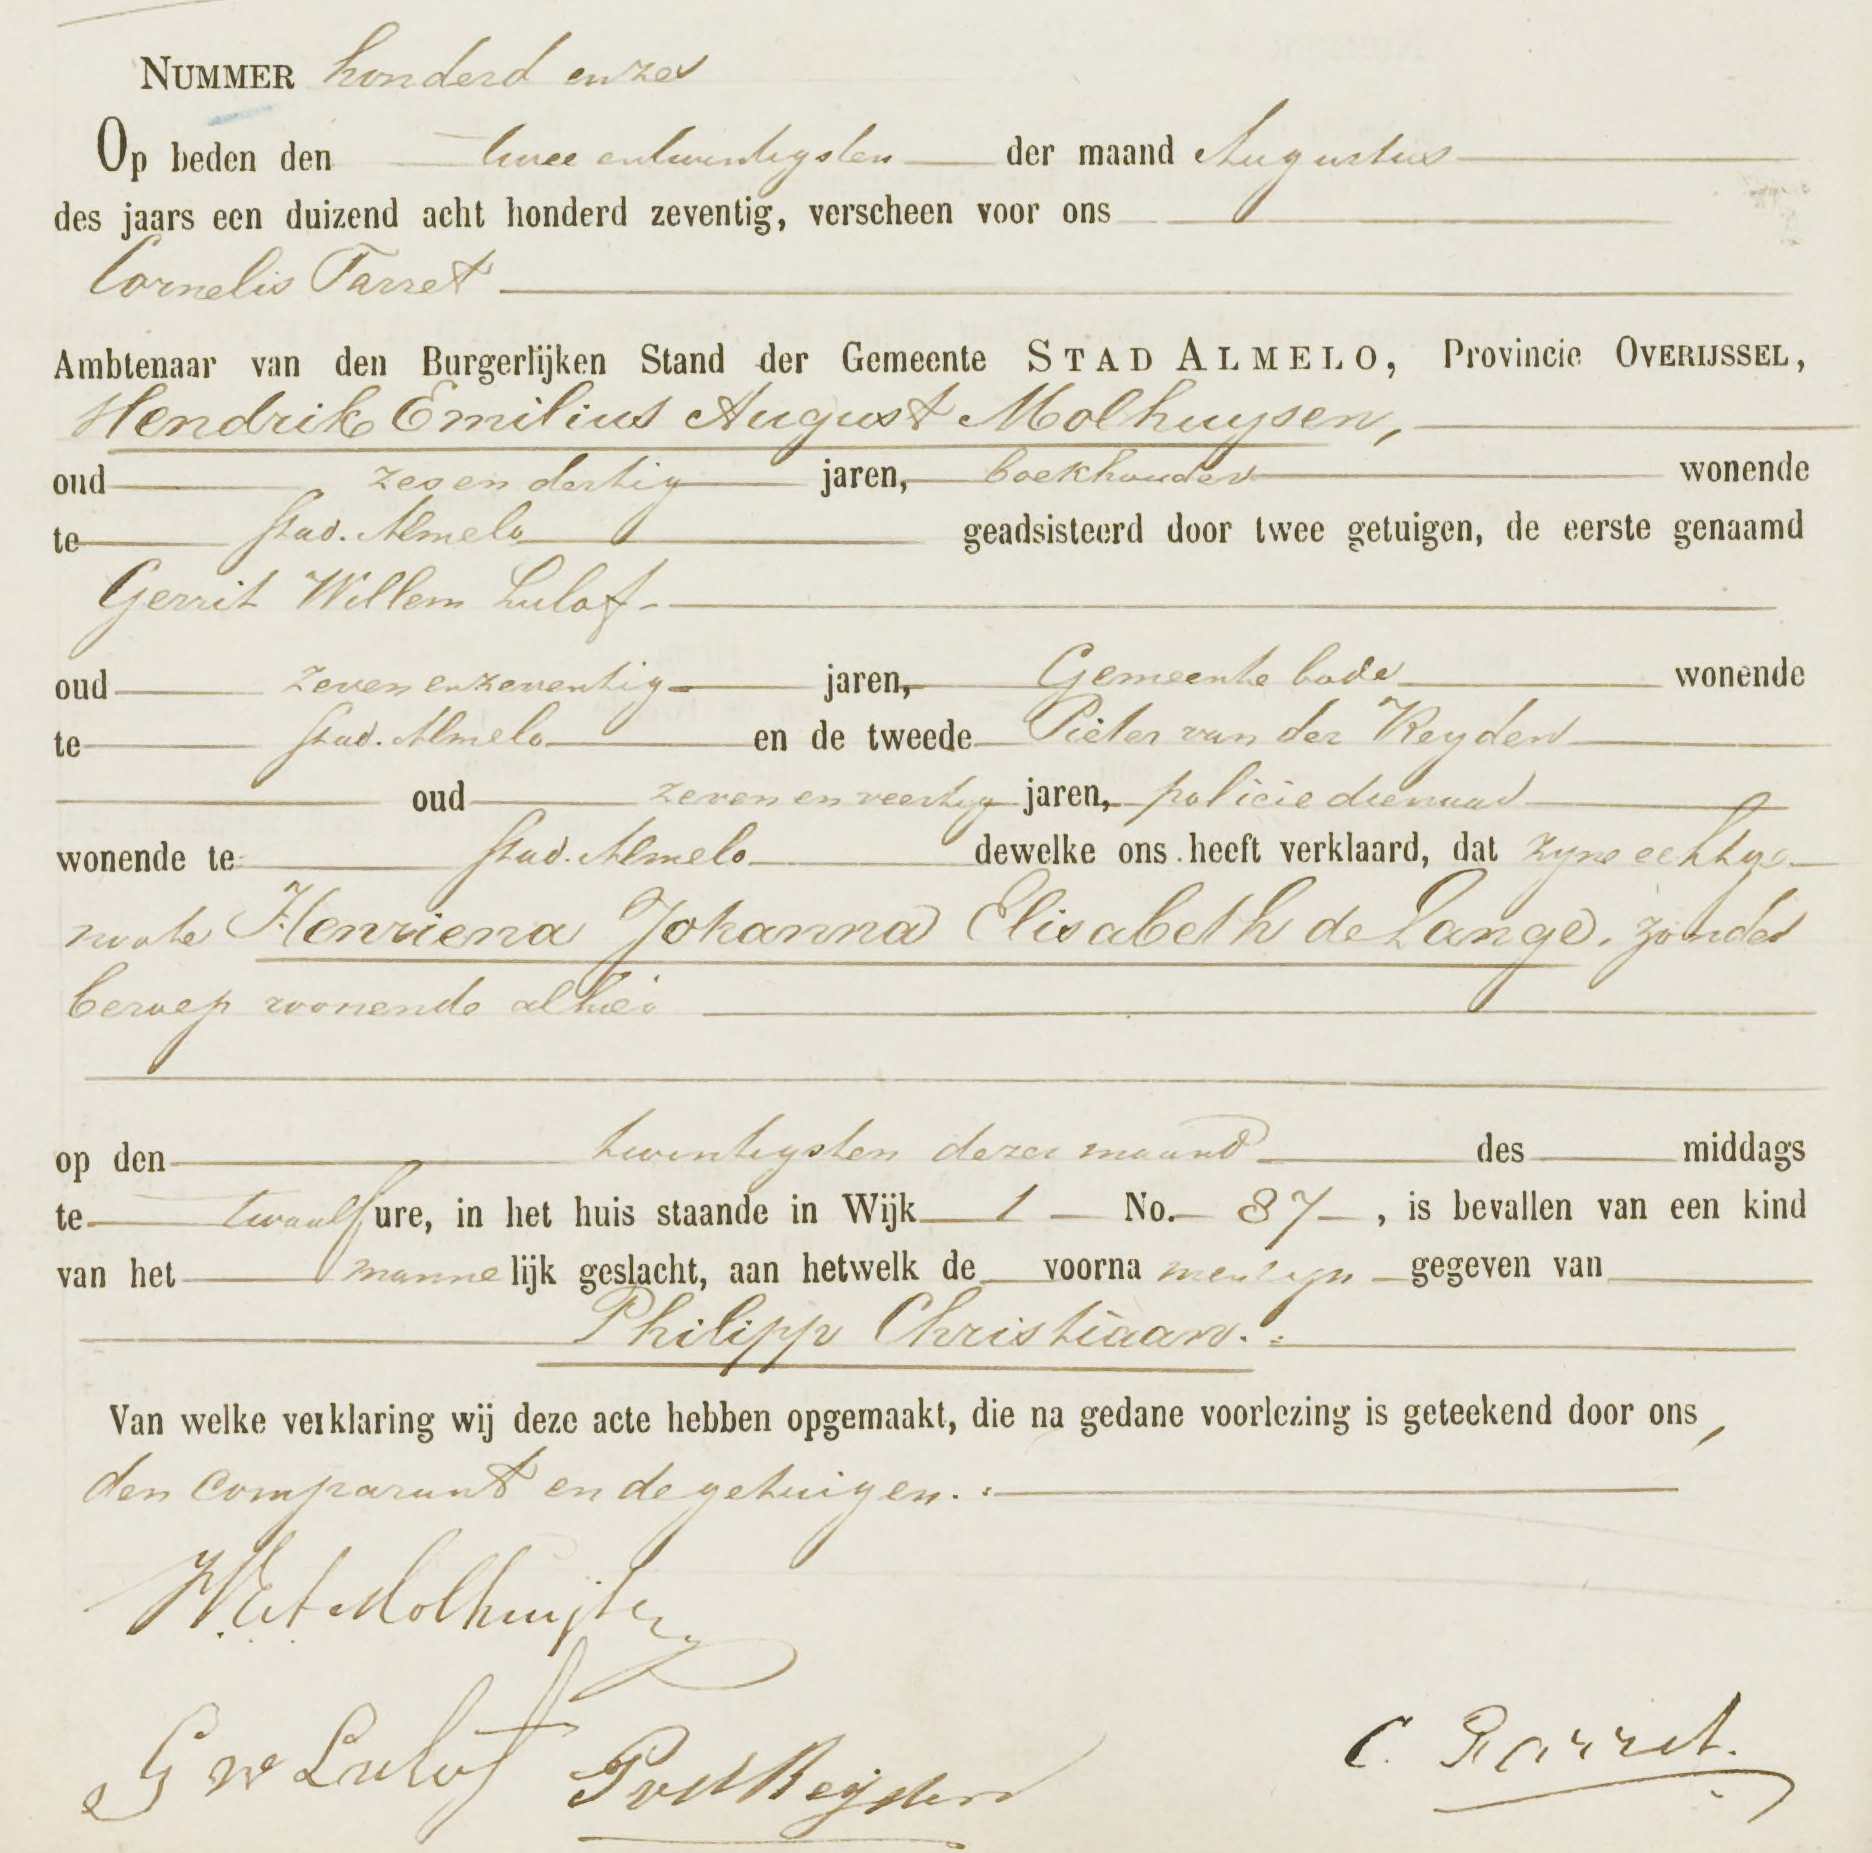 NUMMER honderd en zes
Op heden den twee en twintigsten der maand Augustus
des jaars een duizend acht honderd zeventig, verscheen voor ons
Cornelis Tarret
Ambtenaar van den Burgerlijken Stand der Gemeente STAD ALMELO, Provincie OVERIJSSEL,
Hendrik Emilius August Molhuysen,
oud zes en dertig jaren, boekhouder wonende
te Stad. Almelo geadsisteerd door twee getuigen, de eerste genaamd
Gerrit Willem Lulof
oud zeven en zeventig jaren, Gemeente bode wonende
te Stad. Almelo en de tweede Pieter van der Reyden
oud zeven en veertig jaren, policie dienaar
wonende te Stad. Almelo dewelke ons heeft verklaard, dat zyne echtge-
noote Henriena Johanna Elisabeth de Lange, zonder
beroep wonende alhier
op den twintigsten dezer maand des middags
te twaalf ure, in het huis staande in Wijk 1 No. 87, is bevallen van een kind
van het mannelijk geslacht, aan hetwelk de voornamen zyn gegeven van
Philipp Christiaan.
Van welke verklaring wij deze acte hebben opgemaakt, die na gedane voorlezing is geteekend door ons,
den comparant en de getuigen.
HEA Molhuijsen
G W Lulof PvdReijden C. Tarret.